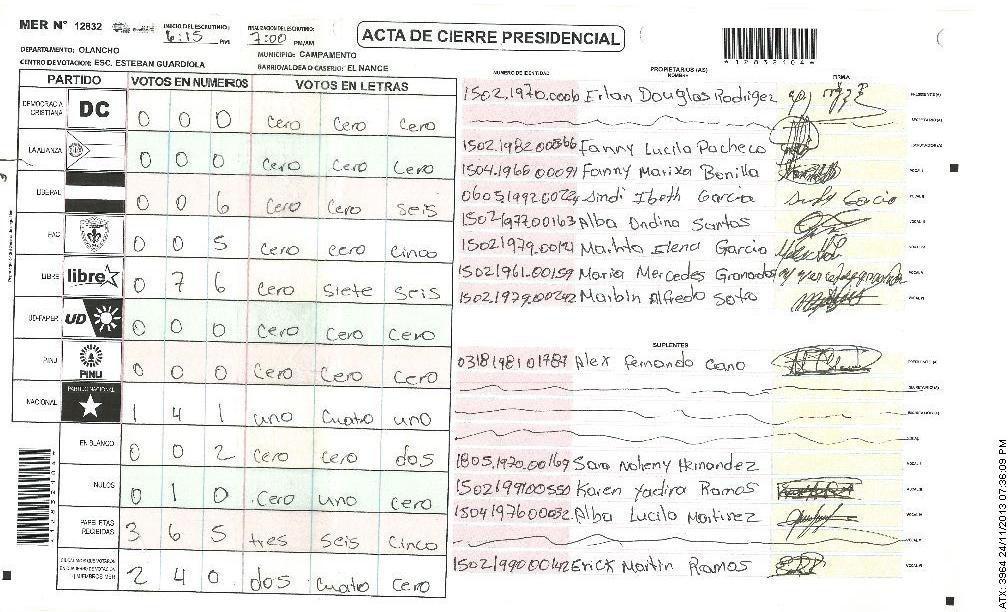 MER N° 12832
INICIO DEL ESCRUTINIO: 6:15 PM
FINALIZACION DEL ESCRUTINIO: 7:00 PM/AM
ACTA DE CIERRE PRESIDENCIAL
DEPARTAMENTO: OLANCHO
MUNICIPIO: CAMPAMENTO
CENTRO DE VOTACION: ESC. ESTEBAN GUARDIOLA
BARRIO/ALDEA O CASERIO: EL NANCE
PARTIDO VOTOS EN NUMEROS VOTOS EN LETRAS
DEMOCRACIA CRISTIANA DC 0 0 0 cero cero cero
LA ALIANZA 0 0 0 cero cero cero
LIBERAL 0 0 6 cero cero seis
PAC 0 0 5 cero cero cinco
LIBRE libre 0 7 6 cero siete seis
UD-FAPER UD 0 0 0 cero cero cero
PINU PINU 0 0 0 cero cero cero
NACIONAL PARTIDO NACIONAL 1 4 1 uno cuatro uno
EN BLANCO 0 0 2 cero cero dos
NULOS 0 1 0 cero uno cero
PAPELETAS RECIBIDAS 3 6 5 tres seis cinco
2 4 0 dos cuatro cero
NUMERO DE IDENTIDAD PROPIETARIOS (AS) NOMBRE FIRMA
Erlan Douglas Rodrigez
Fanny Lucila Pacheco
1504196600091 Fanny Marixa Bonilla
Sindi Ibeth Garcia
1502197700163 Alba Ondina Santos
Elena Garcia
1502196100159 Maria Mercedes Granados
1502197900242 Marbin Alfredo Soto
SUPLENTES
0318198101787 Alex Fernando Cano
1805197000169 Sara Nohemy Hernandez
1502199100550 Karen Yadira Ramos
1504197600032 Alba Lucila Martinez
1502199000142 Erick Martin Ramos
ATX: 3964 24/11/2013 07:36:09 PM